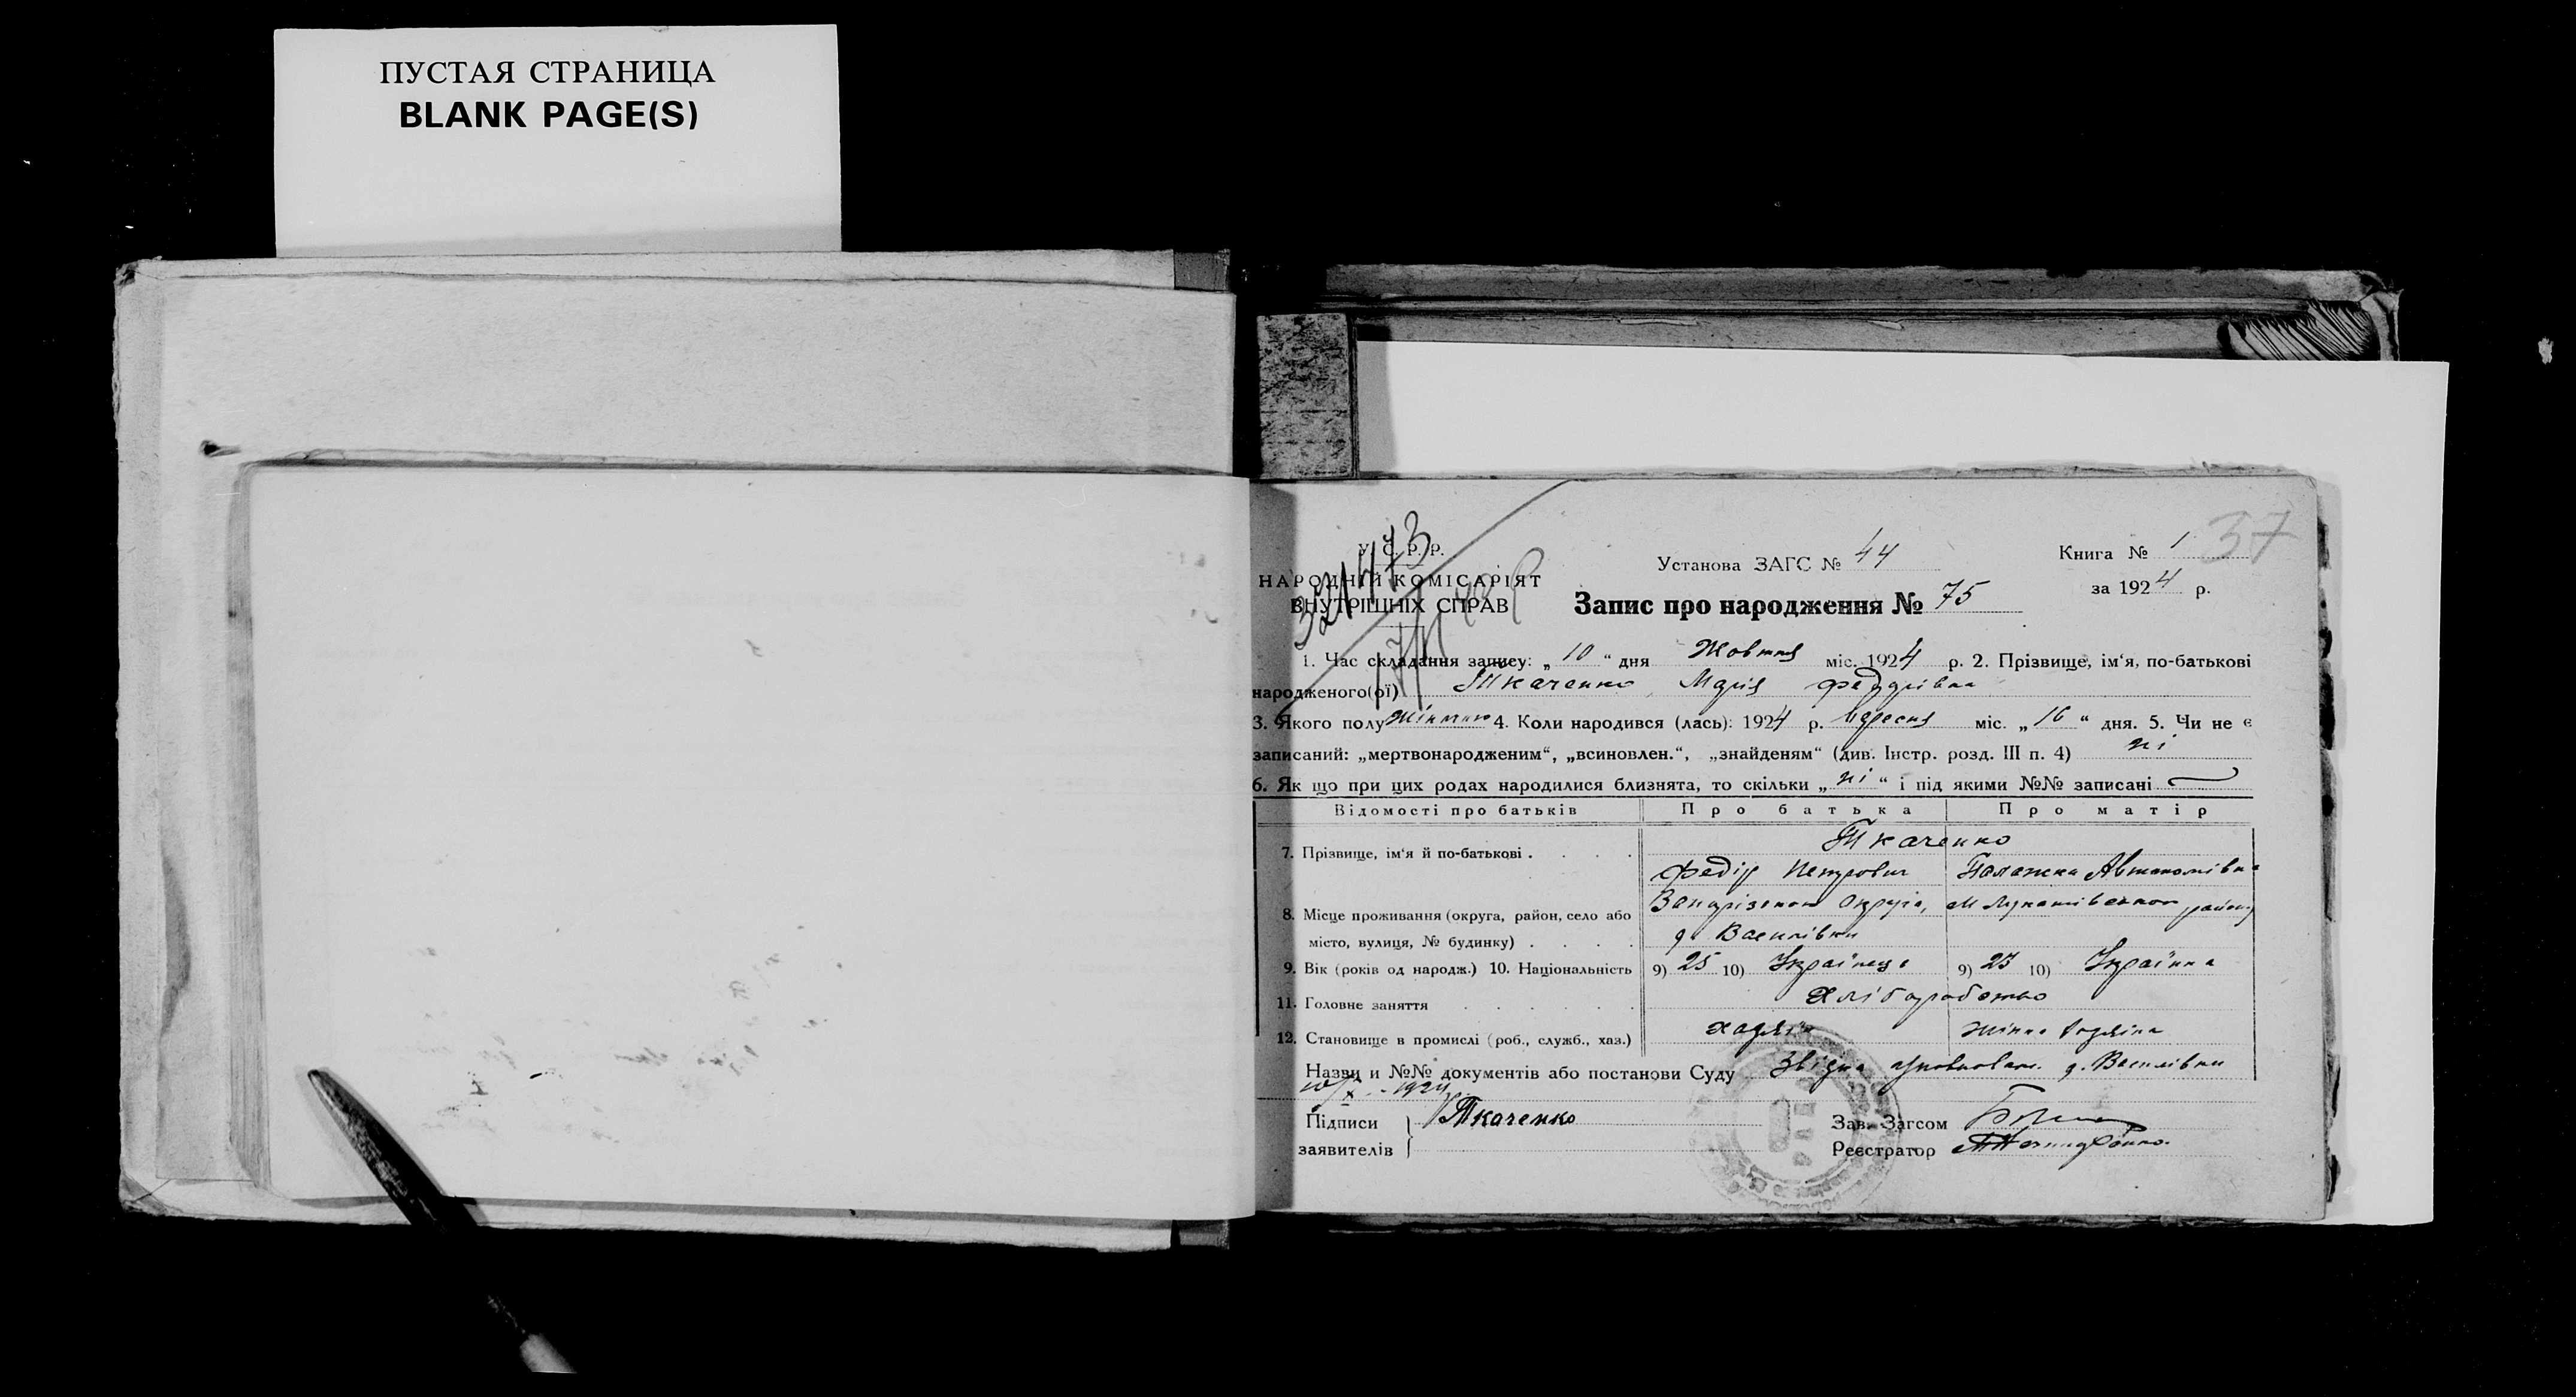 ПУСТАЯ СТРАНИЦА
BLANK PAGE(S)
37
321473
У. С. Р. Р.
НАРОДНІЙ КОМІСАРІЯТ
ВНУТРІШНІХ СПРАВ
Установа ЗАГС № 44
Книга № 1
за 1924 р.
Запис про народження № 75
1. Час складання запису: „ 10 “ дня Жовтня міс. 1924 р. 2. Прізвище, ім‘я, по-батькові
народженого(ої) Ткаченко, Марія Федорівна
3. Якого полу жіночого 4. Коли народився (лась): 1924 р. Вересня міс. „ 16 “ дня. 5. Чи не є
записаний: „мертвонародженим“, „всиновлен.“, „знайденям“ (див. Інстр. розд. III п. 4) ні
6. Як що при цих родах народилися близнята, то скільки „ ні “ і під якими №№ записані
Відомості про батьків Про батька Про матір
7. Прізвище, ім‘я й по-батькові . . . . Ткаченко
Федір Петрович Палажка Автономівна
8. Місце проживання (округа, район, село або Запорізької Округи, району
місто, вулиця, № будинку) . . . . д. Василівки
9. Вік (років од народж.) 10. Національність 9) 25 10) Українець 9) 23 10) Українка
11. Головне заняття . . . . . . Хліборобство
12. Становище в промислі (роб., служб., хаз.) хазяїн жінка хазяїна
Назви и №№ документів або постанови Суду д. Василівки
10/X - 1924
Підписи Ткаченко
заявителів
Зав. Загсом
Реєстратор